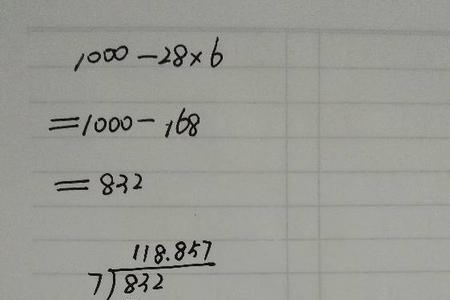 1000-28×6
=1000-168
=832
118.857
7)832